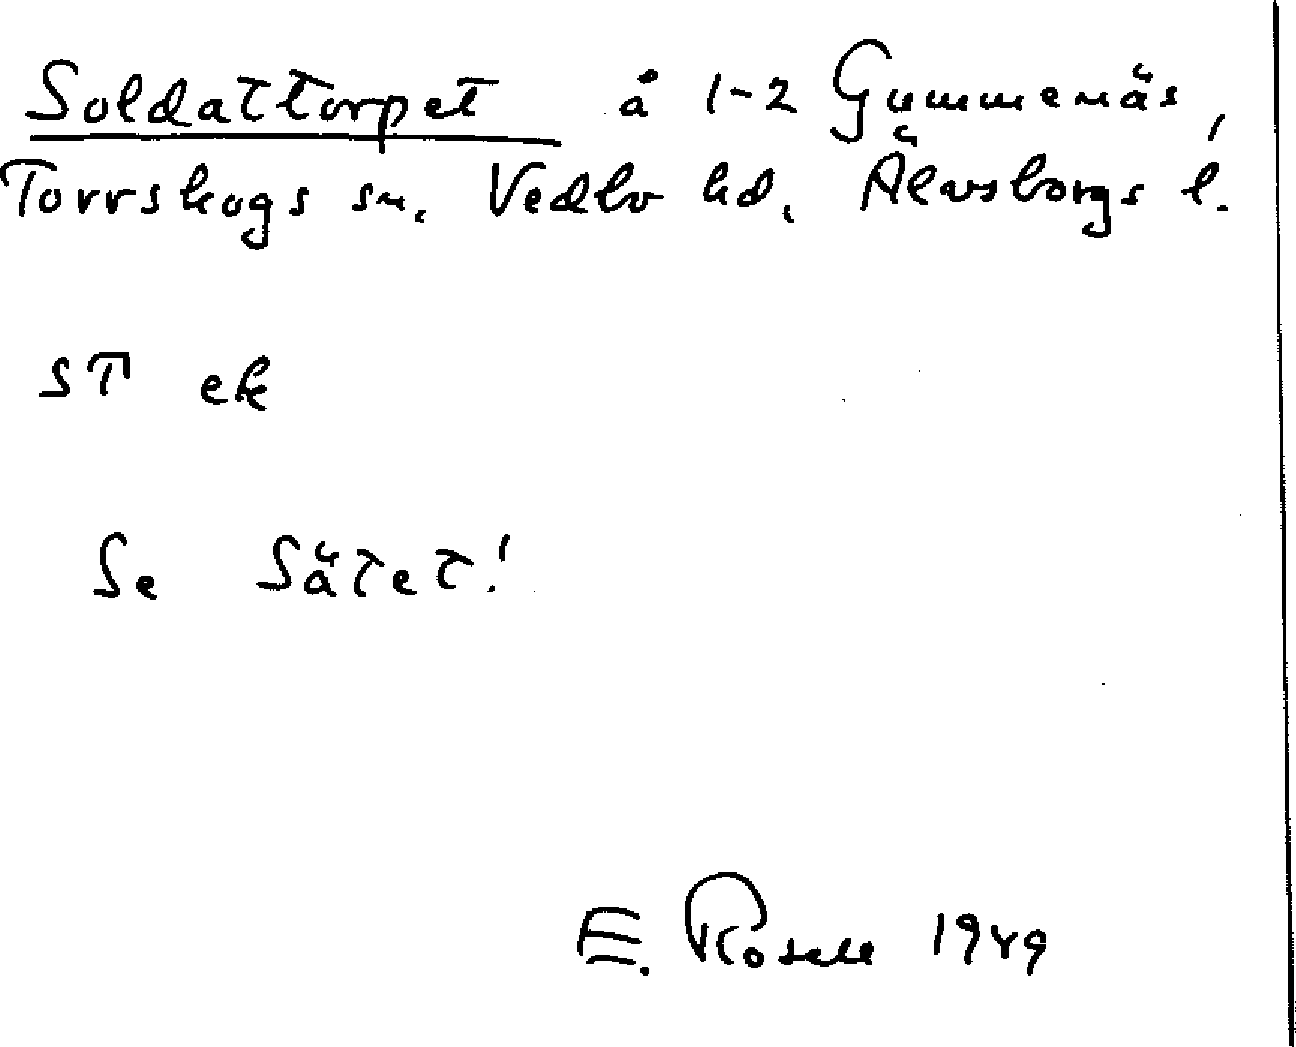 Soldattorpet å 1-2 Gummenäs,
Torrskogs sn. Vedbo hd. Älvsborgs l.
ST ek
Se Sätet!
E. Rosell 1949